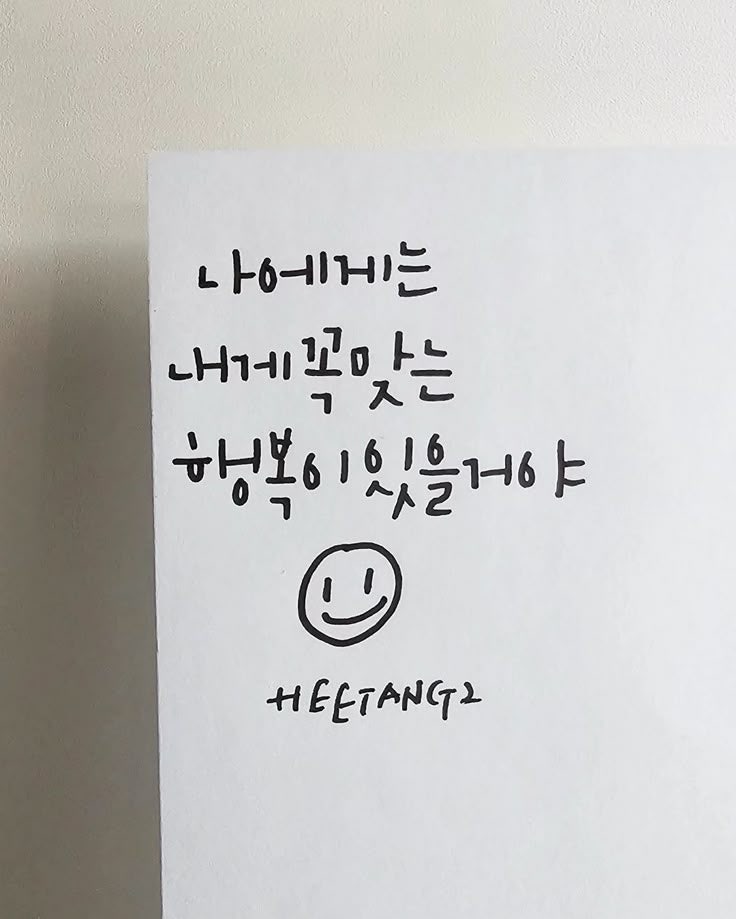 나에게는
내게꼭맞는
행복이있을거야
HEETANG2